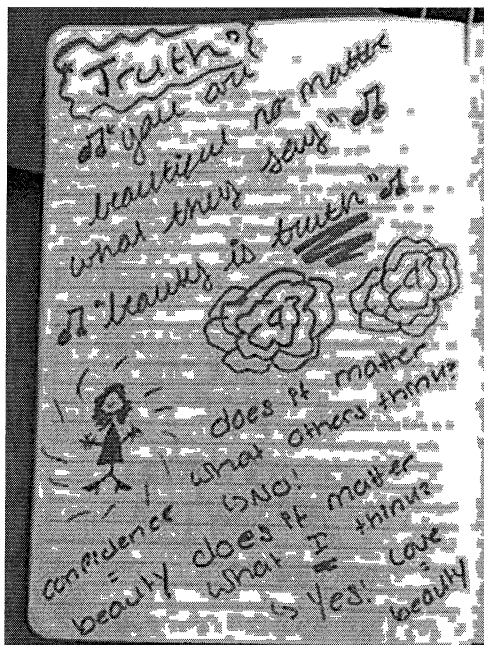 Truth:
♫"you are
beautiful no matter
what they say"♫
♫"beauty is truth"♫
does it matter
what others think?
↳ NO!
confidence
=
beauty
does it matter
what I think?
↳ Yes!
Love
=
beauty